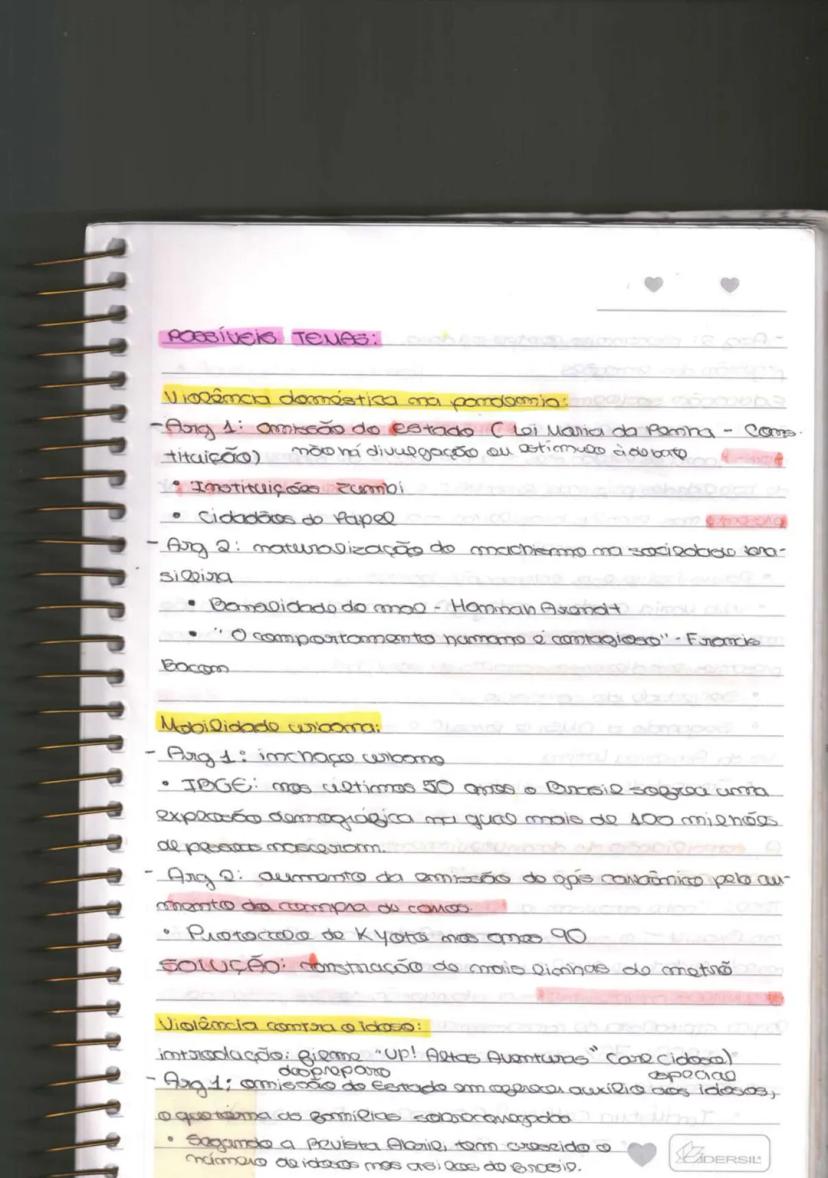 POSSÍVEIS TEMAS:
Violência doméstica na pandemia:
- Arg 1: omissão do estado (Lei Maria da Penha - Cons-
tituição) não há divulgação ou estímulo
• Instituições Zumbi
• Cidadãos de Papel
- Arg 2: naturalização do machismo na sociedade bra-
sileira
• Banalidade do mal - Hannah Arendt
• "O comportamento humano é contagioso" - Francis
Bacon
Mobilidade urbana:
- Arg 1: inchaço urbano
• IBGE: nos últimos 50 anos o Brasil sofreu uma
explosão demográfica na qual mais de 100 milhões
de pessoas nasceram.
- Arg 2: aumento da emissão do gás carbônico pelo au-
mento da compra de carros.
• Protocolo de Kyoto nos anos 90
SOLUÇÃO: construção de mais linhas do metrô
Violência contra o idoso:
introdução: filme "UP! Altas Aventuras"
despreparo especial
- Arg 1: omissão do Estado em oferecer auxílio aos idosos,
o que torna as famílias sobrecarregadas
• Segundo a Revista Abril, tem crescido o
número de idosos nos asilos do Brasil.
IDERSIL